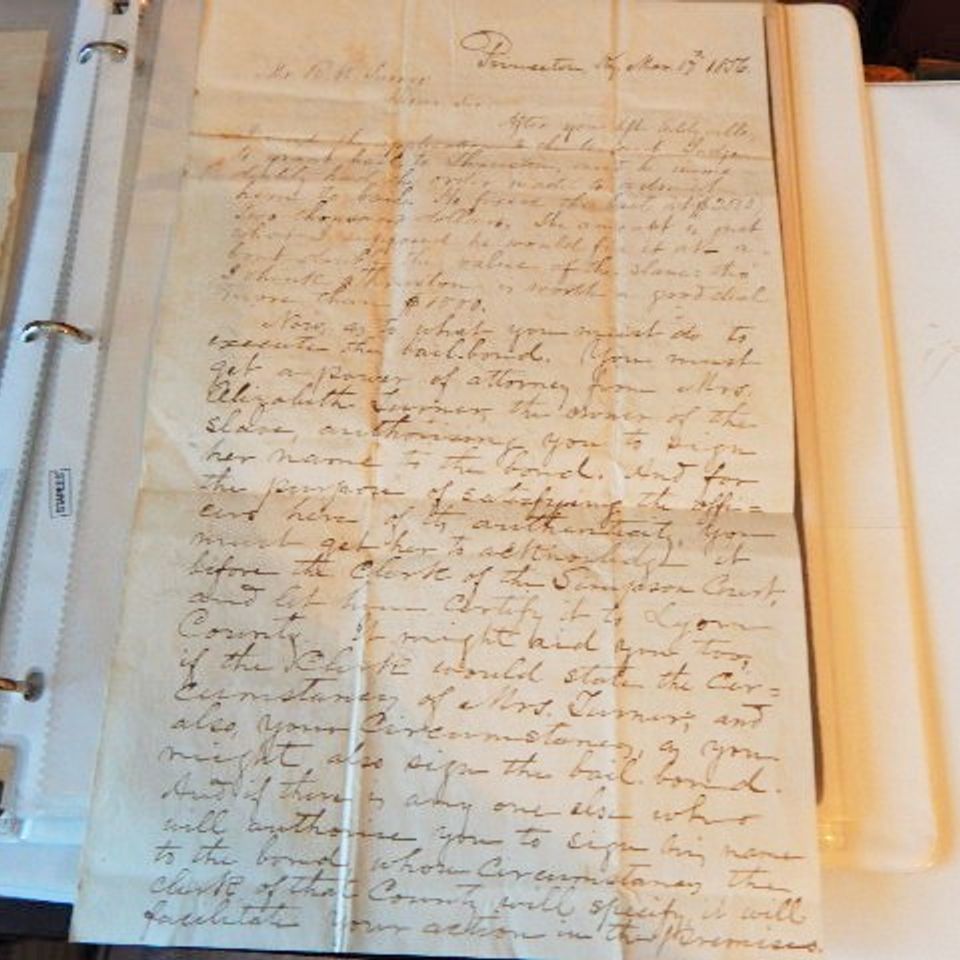 Princeton Ky Mar. 17th 1856.
Mr. R. H. Turner
Dear Sir
After you left Eddyville,
I
to grant bail to Thruston, and he
the order made to admit
him to bail. He fixed the bail at $2000
Two thousand dollars. The amount is just
what I supposed he would fix it at a-
bout the value of the slave: tho'
I think Thruston is worth a good deal
more than $1000.
Now, as to what you must do to
execute the bail-bond. You must
get a power of attorney from Mrs.
Elizabeth Turner, the owner of the
slave, authorising you to sign
her name to the bond. And for
the purpose of satisfying the offi=
cers here of its authenticity, you
must get her to acknowledge it
before the Clerk of the Simpson Court,
and let him certify it to Lyon
County. It might aid you too,
if the Clerk would state the Cir=
cumstances of Mrs. Turner, and
also, your Circumstances, as you
might also sign the bail-bond.
And if there is any one else who
will authorise you to sign his name
to the bond whose Circumstances the
clerk of that County will specify, it will
facilitate your action in the premises.
STAPLES